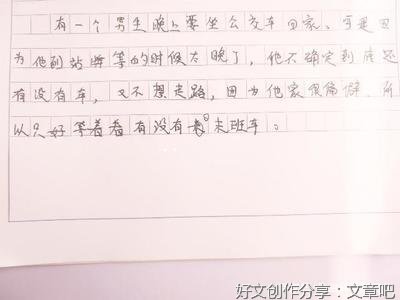 有一个男生晚上要坐公交车回家、可是因
为他到站牌等的时候太晚了，他不确定到底还
有没有车，又不想走路，因为他家很偏僻、所
以只好等着看有没有末班车。
好文创作分享：文章吧